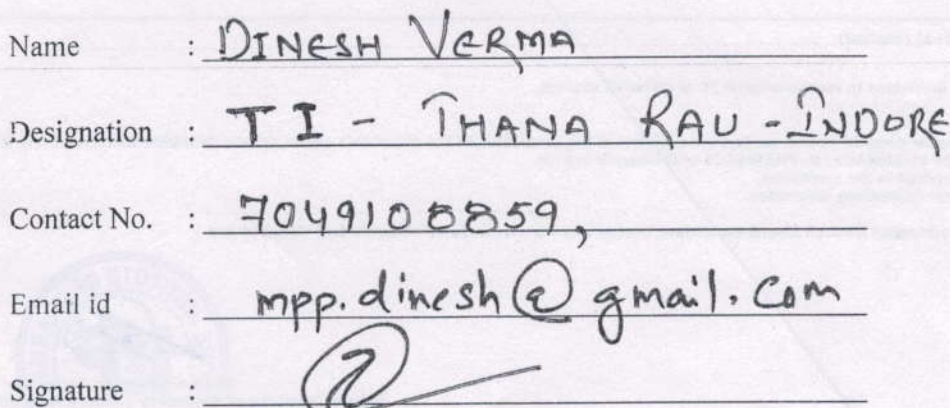 Name : DINESH VERMA
Designation : TI - THANA RAU - INDORE
Contact No. : 7049108859,
Email id : mpp.dinesh@gmail.com
Signature :